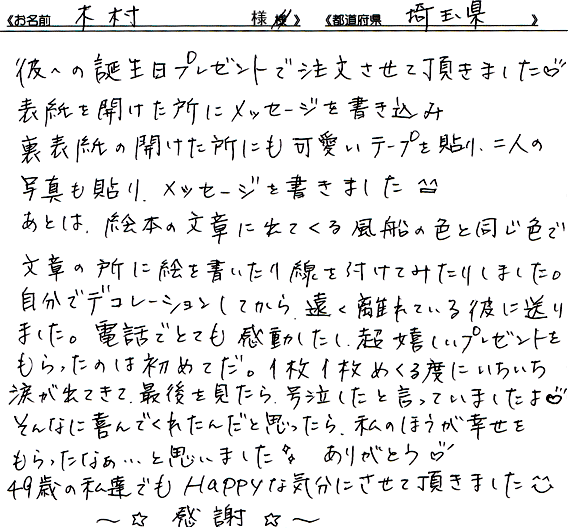 《お名前 木村 様》 《都道府県 埼玉県 》
彼への誕生日プレゼントで注文させて頂きました♡
表紙を開けた所にメッセージを書き込み
裏表紙の開けた所にも可愛いテープを貼り、二人の
写真も貼り、メッセージを書きました
あとは、絵本の文章に出てくる風船の色と同じ色で
文章の所に絵を書いたり線を付けてみたりしました。
自分でデコレーションしてから、遠く離れている彼に送り
ました。電話でとても感動したし、超嬉しいプレゼントを
もらったのは初めてだ。1枚1枚めくる度にいちいち
涙が出てきて、最後を見たら、号泣したと言っていましたよ♡
そんなに喜んでくれたんだと思ったら、私のほうが幸せを
もらったなぁ…と思いました ありがとう♡
49歳の私達でもHappyな気分にさせて頂きました
～☆ 感謝 ☆～